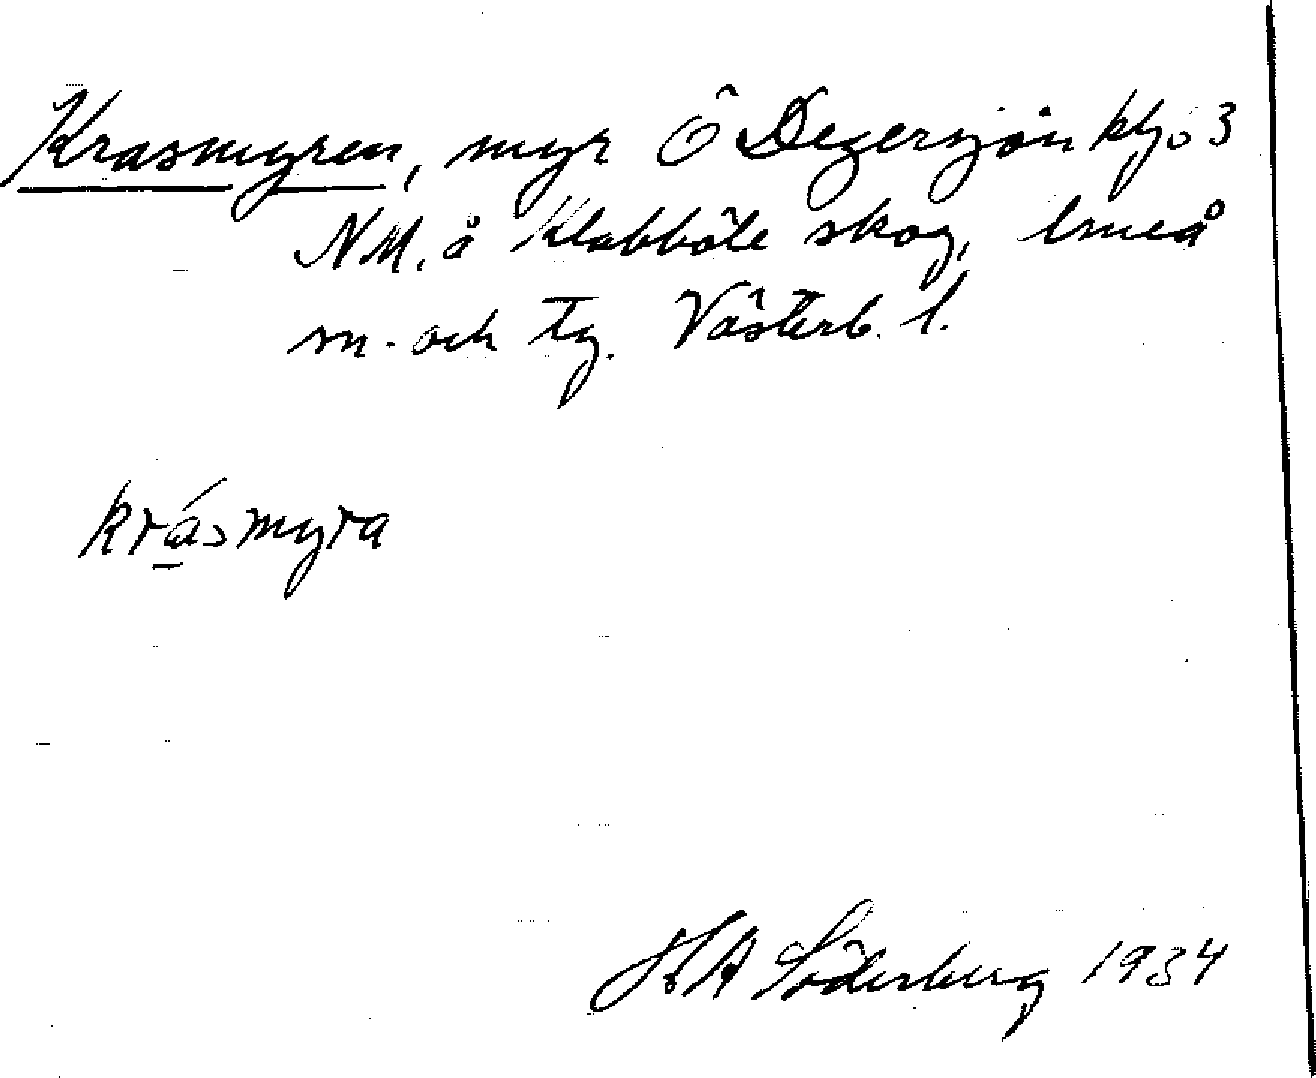 Krasmyren, myr Ö Degersjön kfjö 3
NM. å Klabböle skog, Umeå
sn. och tg. Västerb. l.
krásmyra
KA Söderberg 1934